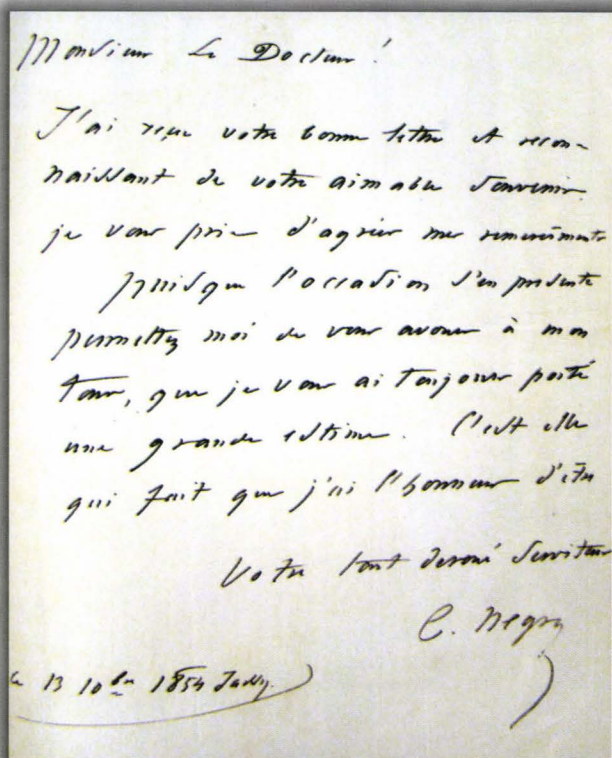 Monsieur Le Docteur !
J'ai reçu votre bonne lettre et recon-
naissant de votre aimable Souvenir
je vous prie d'agréer mes remerciments
Puisque l'occasion s'en présente
permettez moi de vous avouer à mon
tour, que je vous ai toujours porté
une grande estime. C'est elle
qui fait que j'ai l'honneur d'être
Votre tout devoué Serviteur
C. Negry
le 13 10bre 1854 Jassy